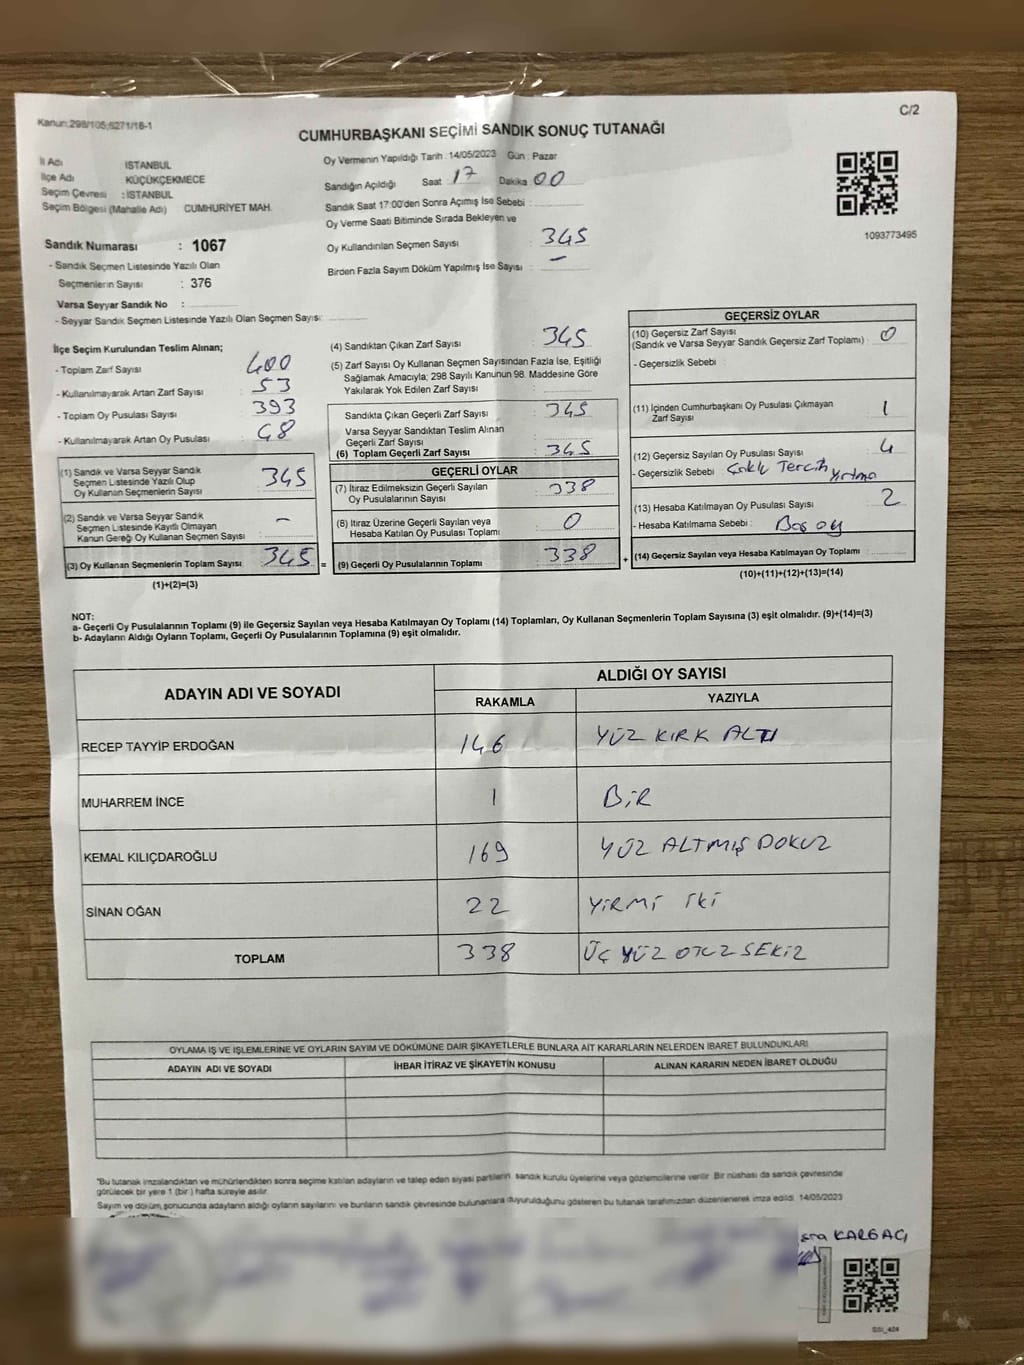 C/2
Kanun;298/105;6271/18-1
CUMHURBAŞKANI SEÇİMİ SANDIK SONUÇ TUTANAĞI
İl Adı İSTANBUL
İlçe Adı KÜÇÜKÇEKMECE
Seçim Çevresi : İSTANBUL
Seçim Bölgesi (Mahalle Adı) CUMHURİYET MAH.
Oy Vermenin Yapıldığı Tarih : 14/05/2023 Gün : Pazar
Sandığın Açıldığı Saat 17 Dakika 00
Sandık Saat 17:00'den Sonra Açımış İse Sebebi :
Oy Verme Saati Bitiminde Sırada Bekleyen ve
Oy Kullandırılan Seçmen Sayısı : 345
Birden Fazla Sayım Döküm Yapılmış İse Sayısı : —
1093773495
Sandık Numarası : 1067
- Sandık Seçmen Listesinde Yazılı Olan
Seçmenlerin Sayısı : 376
Varsa Seyyar Sandık No :
- Seyyar Sandık Seçmen Listesinde Yazılı Olan Seçmen Sayısı:
İlçe Seçim Kurulundan Teslim Alınan;
- Toplam Zarf Sayısı : 400
- Kullanılmayarak Artan Zarf Sayısı : 53
- Toplam Oy Pusulası Sayısı : 393
- Kullanılmayarak Artan Oy Pusulası : 48
(1) Sandık ve Varsa Seyyar Sandık
Seçmen Listesinde Yazılı Olup
Oy Kullanan Seçmenlerin Sayısı : 345
(2) Sandık ve Varsa Seyyar Sandık
Seçmen Listesinde Kayıtlı Olmayan
Kanun Gereği Oy Kullanan Seçmen Sayısı : —
(3) Oy Kullanan Seçmenlerin Toplam Sayısı : 345 =
(1)+(2)=(3)
(4) Sandıktan Çıkan Zarf Sayısı : 345
(5) Zarf Sayısı Oy Kullanan Seçmen Sayısından Fazla İse, Eşitliği
Sağlamak Amacıyla; 298 Sayılı Kanunun 98. Maddesine Göre
Yakılarak Yok Edilen Zarf Sayısı :
Sandıkta Çıkan Geçerli Zarf Sayısı : 345
Varsa Seyyar Sandıktan Teslim Alınan
Geçerli Zarf Sayısı :
(6) Toplam Geçerli Zarf Sayısı : 345
GEÇERLİ OYLAR
(7) İtiraz Edilmeksizin Geçerli Sayılan
Oy Pusulalarının Sayısı : 338
(8) İtiraz Üzerine Geçerli Sayılan veya
Hesaba Katılan Oy Pusulası Toplamı : 0
(9) Geçerli Oy Pusulalarının Toplamı : 338 +
GEÇERSİZ OYLAR
(10) Geçersiz Zarf Sayısı
(Sandık ve Varsa Seyyar Sandık Geçersiz Zarf Toplamı) : 0
- Geçersizlik Sebebi :
(11) İçinden Cumhurbaşkanı Oy Pusulası Çıkmayan
Zarf Sayısı : 1
(12) Geçersiz Sayılan Oy Pusulası Sayısı : 4
- Geçersizlik Sebebi : Çoklu Tercih
Yırtma
(13) Hesaba Katılmayan Oy Pusulası Sayısı : 2
- Hesaba Katılmama Sebebi : Boş oy
(14) Geçersiz Sayılan veya Hesaba Katılmayan Oy Toplamı :
(10)+(11)+(12)+(13)=(14)
NOT:
a- Geçerli Oy Pusulalarının Toplamı (9) ile Geçersiz Sayılan veya Hesaba Katılmayan Oy Toplamı (14) Toplamları, Oy Kullanan Seçmenlerin Toplam Sayısına (3) eşit olmalıdır. (9)+(14)=(3)
b- Adayların Aldığı Oyların Toplamı, Geçerli Oy Pusulalarının Toplamına (9) eşit olmalıdır.
ADAYIN ADI VE SOYADI ALDIĞI OY SAYISI
RAKAMLA YAZIYLA
RECEP TAYYİP ERDOĞAN 146 YÜZ KIRK ALTI
MUHARREM İNCE 1 BİR
KEMAL KILIÇDAROĞLU 169 YÜZ ALTMIŞ DOKUZ
SİNAN OĞAN 22 YİRMİ İKİ
TOPLAM 338 ÜÇ YÜZ OTUZ SEKİZ
OYLAMA İŞ VE İŞLEMLERİNE VE OYLARIN SAYIM VE DÖKÜMÜNE DAİR ŞİKAYETLERLE BUNLARA AİT KARARLARIN NELERDEN İBARET BULUNDUKLARI
ADAYIN ADI VE SOYADI İHBAR İTİRAZ VE ŞİKAYETİN KONUSU ALINAN KARARIN NEDEN İBARET OLDUĞU
"Bu tutanak imzalandıktan ve mühürlendikten sonra seçime katılan adayların ve talep eden siyasi partilerin sandık kurulu üyelerine veya gözlemcilerine verilir. Bir nüshası da sandık çevresinde
görülecek bir yere 1 (bir) hafta süreyle asılır.
Sayım ve döküm sonucunda adayların aldığı oyların sayılarını ve bunların sandık çevresinde bulunanlara duyurulduğunu gösteren bu tutanak tarafımızdan düzenlenerek imza edildi. 14/05/2023
KARGACI